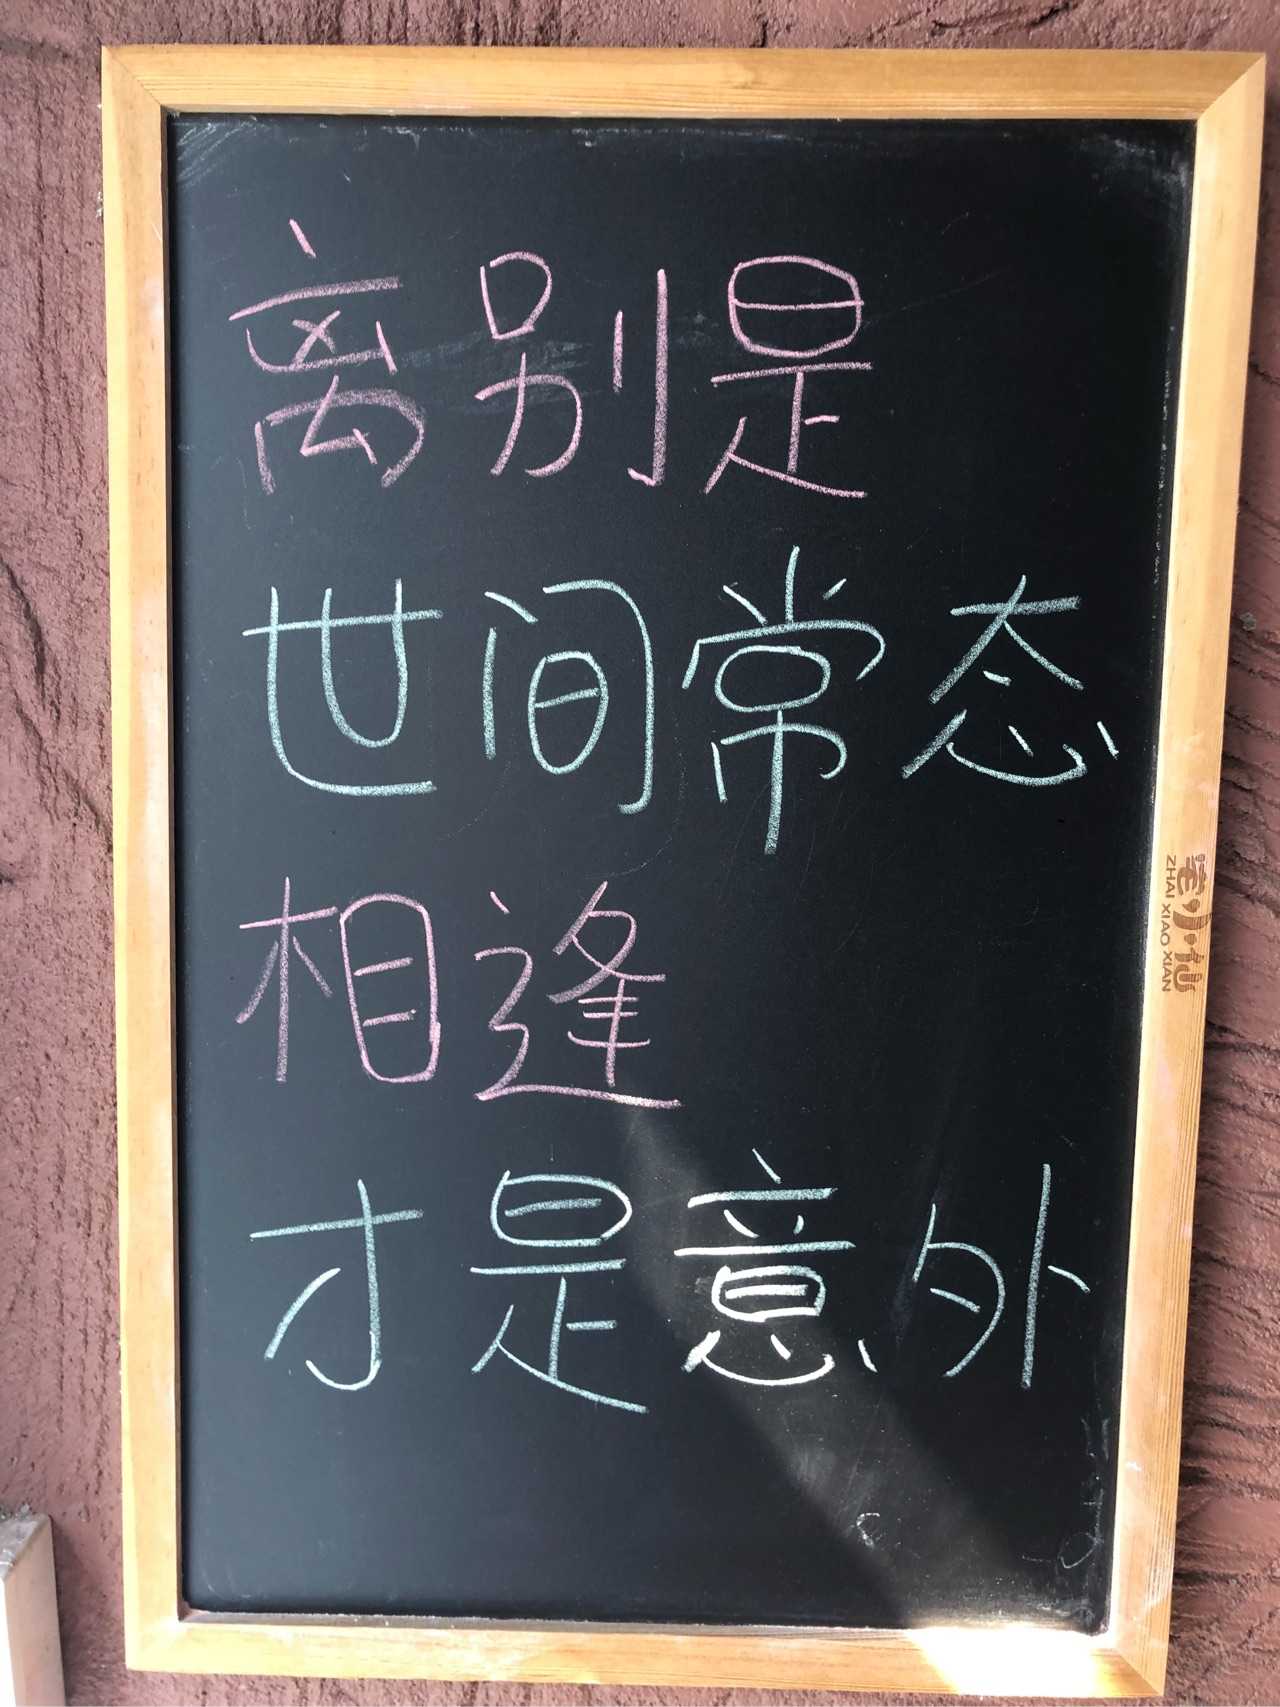 离别是
世间常态
相逢
才是意外
宅小仙
ZHAI XIAO XIAN